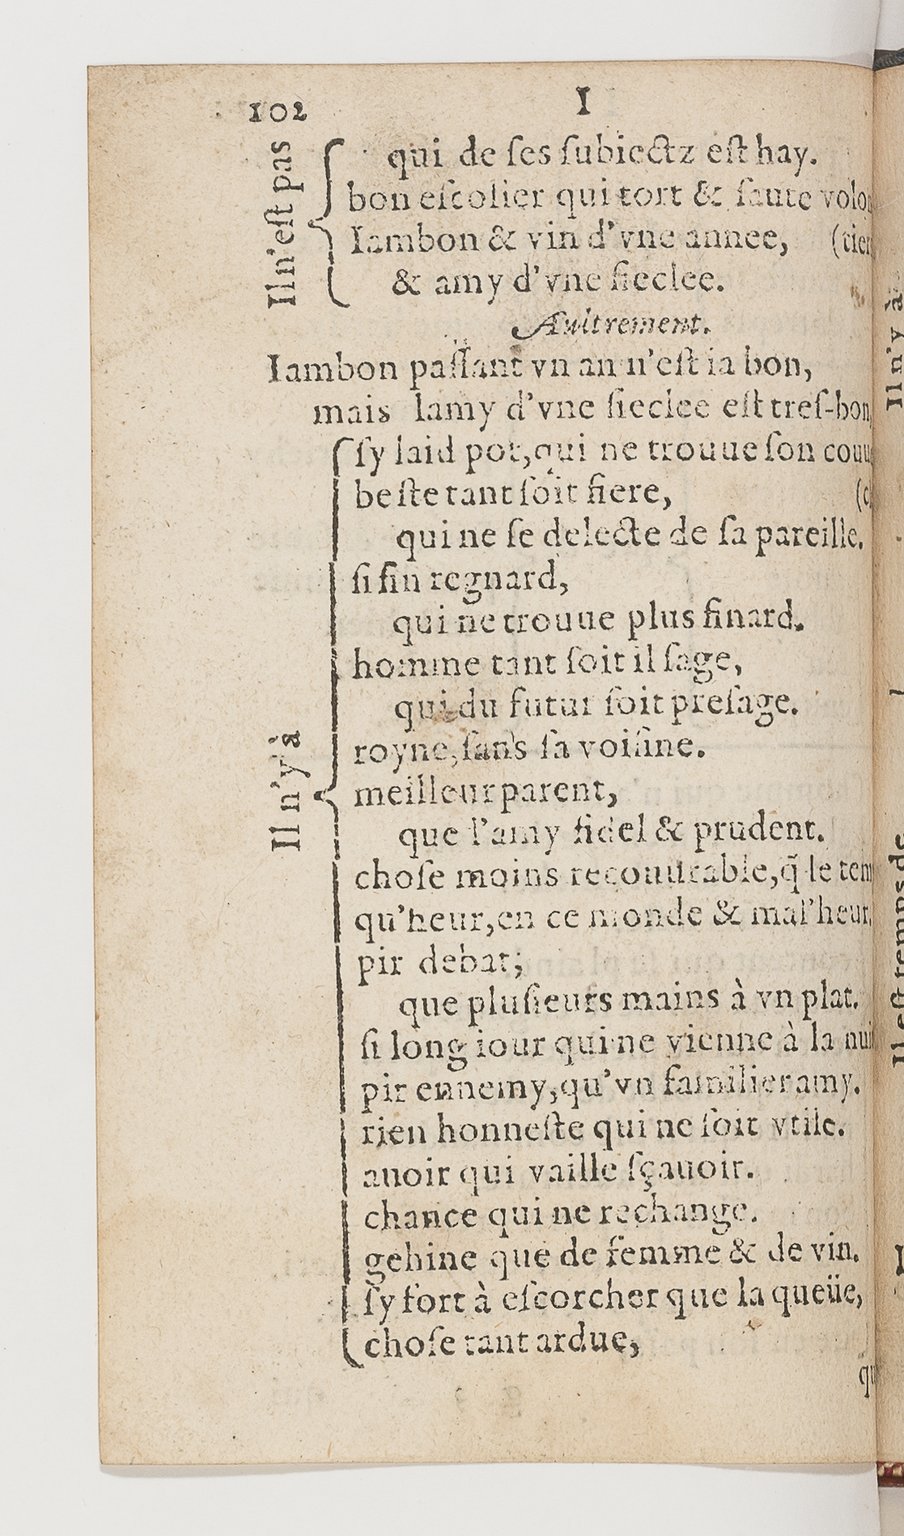 102
I
Il n'est pas
qui de ses subiectz est hay.
bon escolier qui tort & saute volo
Iambon & vin d'vne annee, (tier
& amy d'vne sieclee.
Autrement.
Iambon passant vn an n'est ia bon,
mais lamy d'vne sieclee est tres-bon
Il n'y à
sy laid pot, qui ne trouue son couu
beste tant soit fiere, (c
qui ne se delecte de sa pareille.
si fin regnard,
qui ne trouue plus finard.
homme tant soit il sage,
qui du futur soit presage.
royne, sans sa voisine.
meilleur parent,
que l'amy fidel & prudent.
chose moins recouurable, q̃ le tem
qu'heur, en ce monde & mal'heur,
pir debat;
que plusieurs mains à vn plat.
si long iour qui ne vienne à la nui
pir ennemy, qu'vn familier amy.
rien honneste qui ne soit vtile.
auoir qui vaille sçauoir.
chance qui ne rechange.
gehine que de femme & de vin.
sy fort à escorcher que la queüe,
chose tant ardue,
qu
Il n'y à
Il est temps de